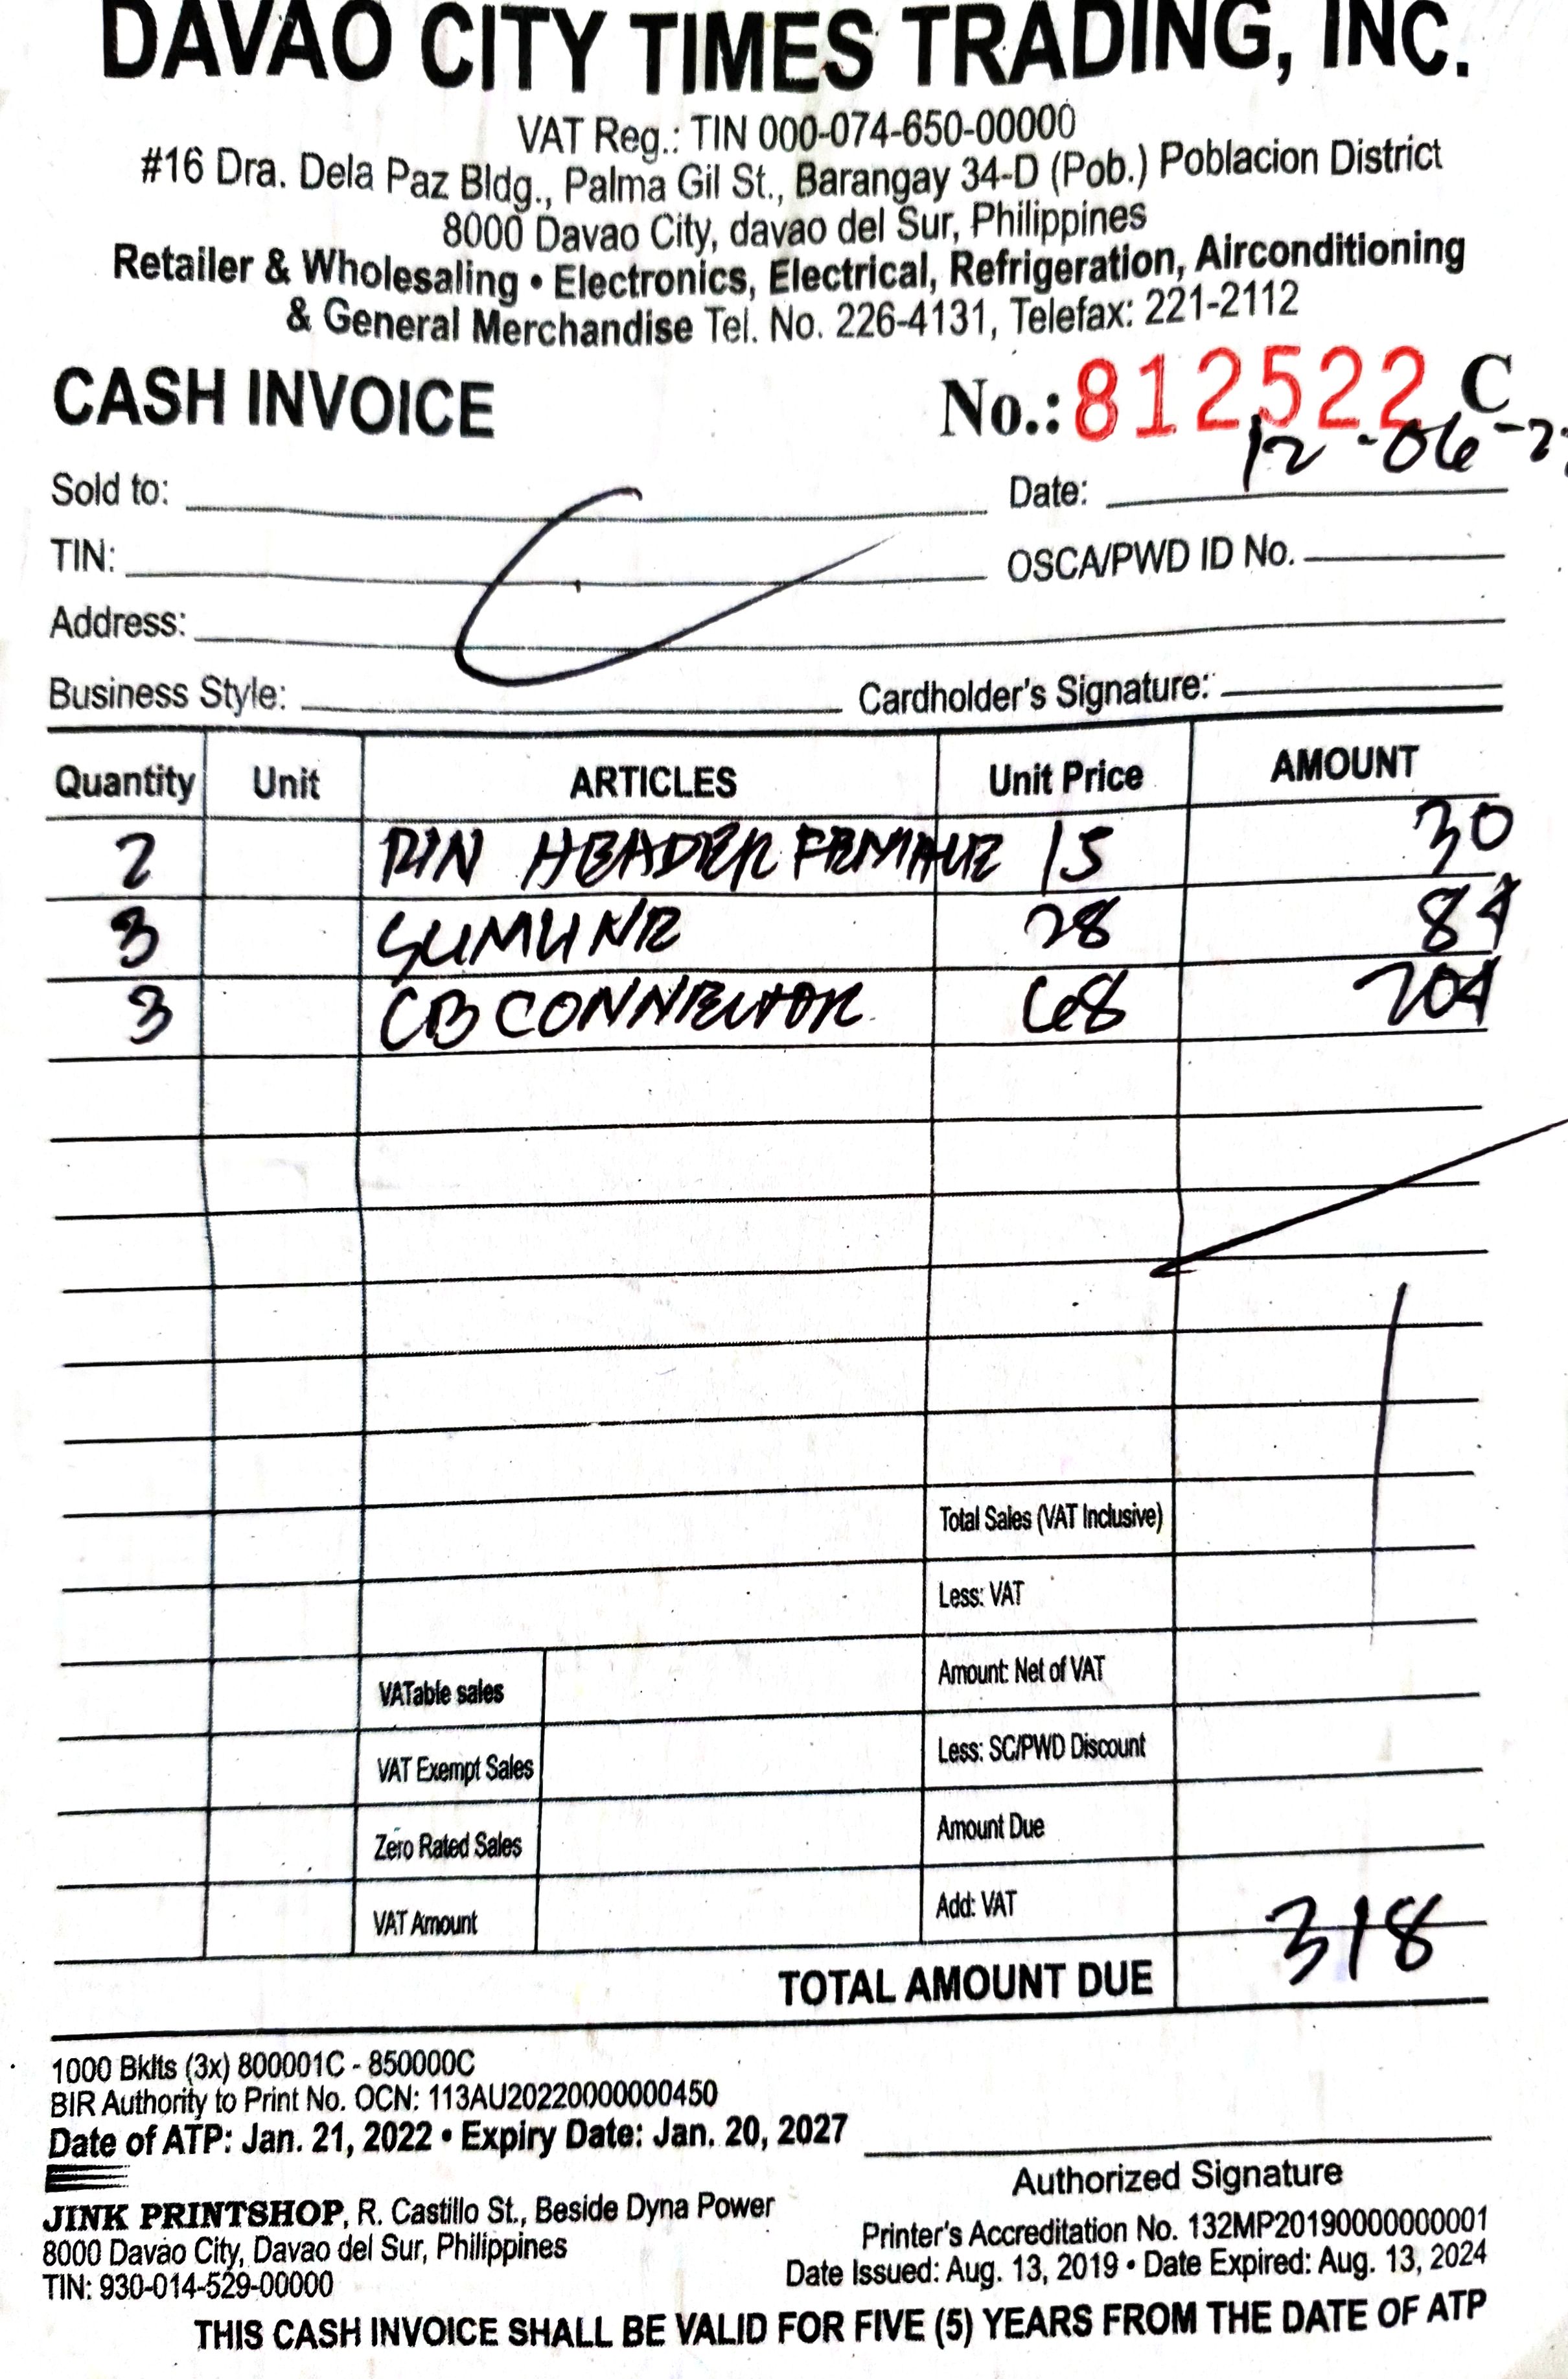 DAVAO CITY TIMES TRADING, INC.
VAT Reg.: TIN 000-074-650-00000
#16 Dra. Dela Paz Bldg., Palma Gil St., Barangay 34-D (Pob.) Poblacion District
8000 Davao City, davao del Sur, Philippines
Retailer & Wholesaling • Electronics, Electrical, Refrigeration, Airconditioning
& General Merchandise Tel. No. 226-4131, Telefax: 221-2112
CASH INVOICE No.: 812522 C
Sold to: Date: 12-06-2
TIN: OSCA/PWD ID No.
Address:
Business Style: Cardholder's Signature:
Quantity Unit ARTICLES Unit Price AMOUNT
2 PIN HEADER FEMALE 15 30
3 28 84
3 CB CONNECTOR 68 204
Total Sales (VAT Inclusive)
Less: VAT
VATable sales Amount: Net of VAT
VAT Exempt Sales Less: SC/PWD Discount
Zero Rated Sales Amount Due
VAT Amount Add: VAT
TOTAL AMOUNT DUE 318
1000 Bklts (3x) 800001C - 850000C
BIR Authority to Print No. OCN: 113AU20220000000450
Date of ATP: Jan. 21, 2022 • Expiry Date: Jan. 20, 2027
Authorized Signature
JINK PRINTSHOP, R. Castillo St., Beside Dyna Power
8000 Davao City, Davao del Sur, Philippines
TIN: 930-014-529-00000
Printer's Accreditation No. 132MP20190000000001
Date Issued: Aug. 13, 2019 • Date Expired: Aug. 13, 2024
THIS CASH INVOICE SHALL BE VALID FOR FIVE (5) YEARS FROM THE DATE OF ATP